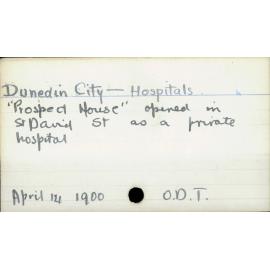 Dunedin City — Hospitals.
"Prospect House" opened in
St David St as a private
hospital
April 14 1900 O.D.T.